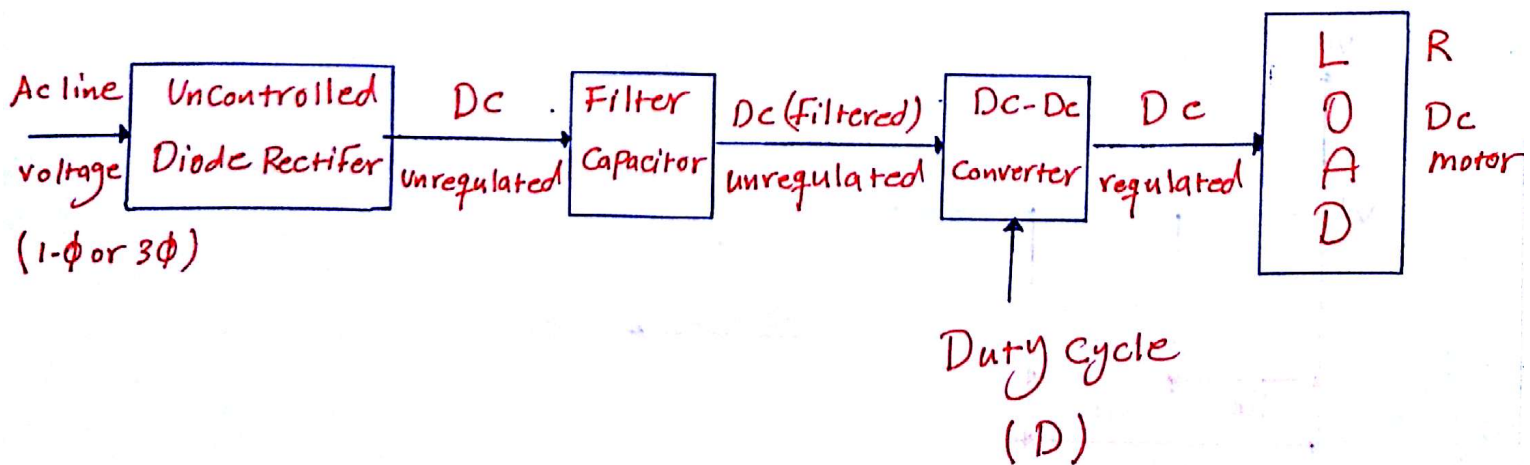 Ac line
voltage
(1-ϕ or 3ϕ)
Uncontrolled
Diode Rectifer
Dc
unregulated
Filter
Capacitor
Dc (Filtered)
unregulated
Dc-Dc
Converter
Duty Cycle
(D)
Dc
regulated
L
O
A
D
R
Dc
motor